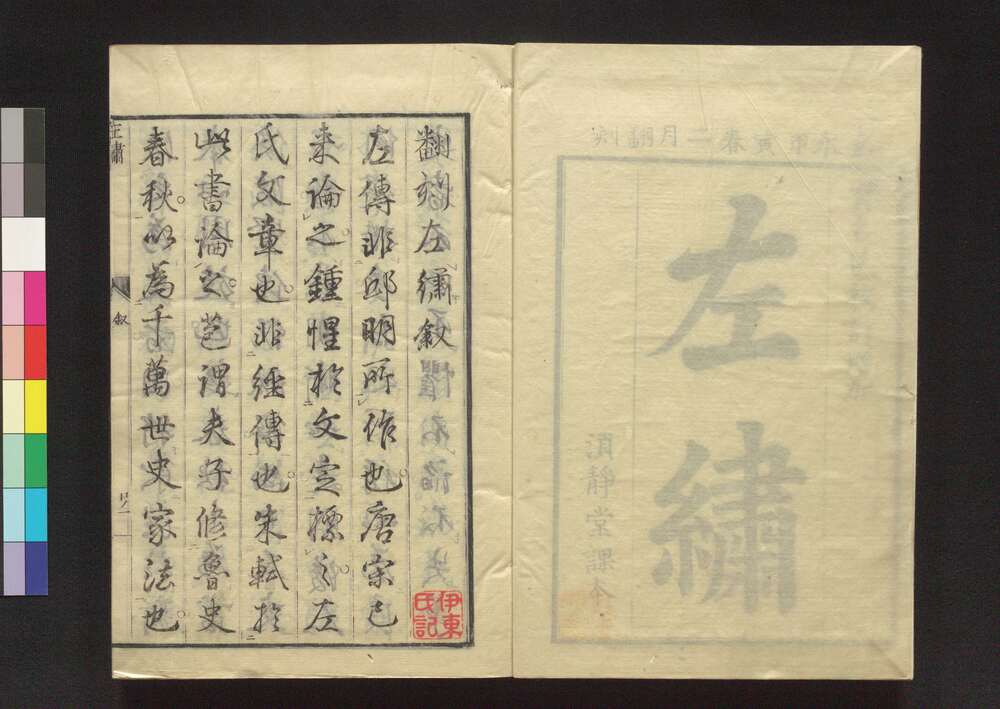 甲寅春二月翻刻
左繡
須靜堂課本
翻刻左繡敘
左傳非邱明所作也。唐宋已
来論之。鍾惺於文定標之。左
氏文章也。非經傳也。朱軾於
此書論之。謂夫子修魯史
春秋。以為千萬世史家法也。
左繡
敘
口ノ一
伊東氏記